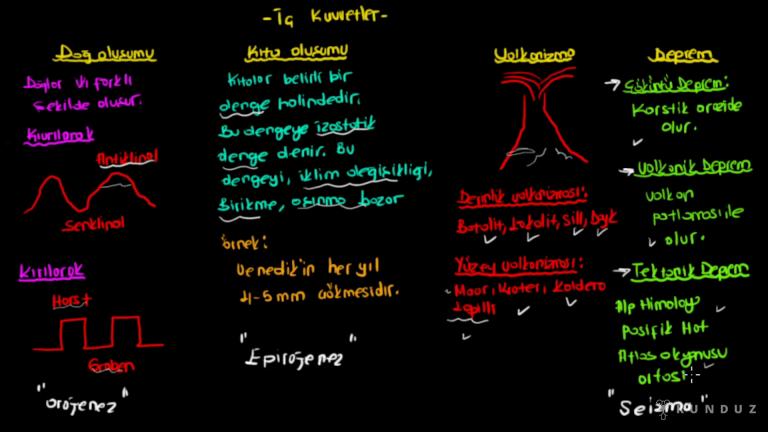 -İç Kuvvetler-
Dağ oluşumu
Dağlar iki farklı
şekilde oluşur.
Kıvrılarak
Antiklinal
Senklinal
Kırılarak
Horst
Graben
"orojenez"
Kıta oluşumu
Kıtalar belirli bir
denge halindedir.
Bu dengeye izostatik
denge denir. Bu
dengeyi, iklim değişikliği,
Birikme, aşınma bozar
örnek:
Venedik'in her yıl
4-5 mm çökmesidir.
"Epirojenez"
Volkanizma
Derinlik volkanizması:
Batolit, Lakolit, Sill, Dayk
Yüzey volkanizması:
Maar, Krater, Kaldera
Lapilli
Deprem
→Çöküntü Deprem:
Karstik arazide
olur.
→Volkanik Deprem
volkan
patlaması ile
olur.
→Tektonik Deprem
Alp Himalaya
Pasifik Hat
Atlas okyanusu
ortası
"Seizma"
KUNDUZ